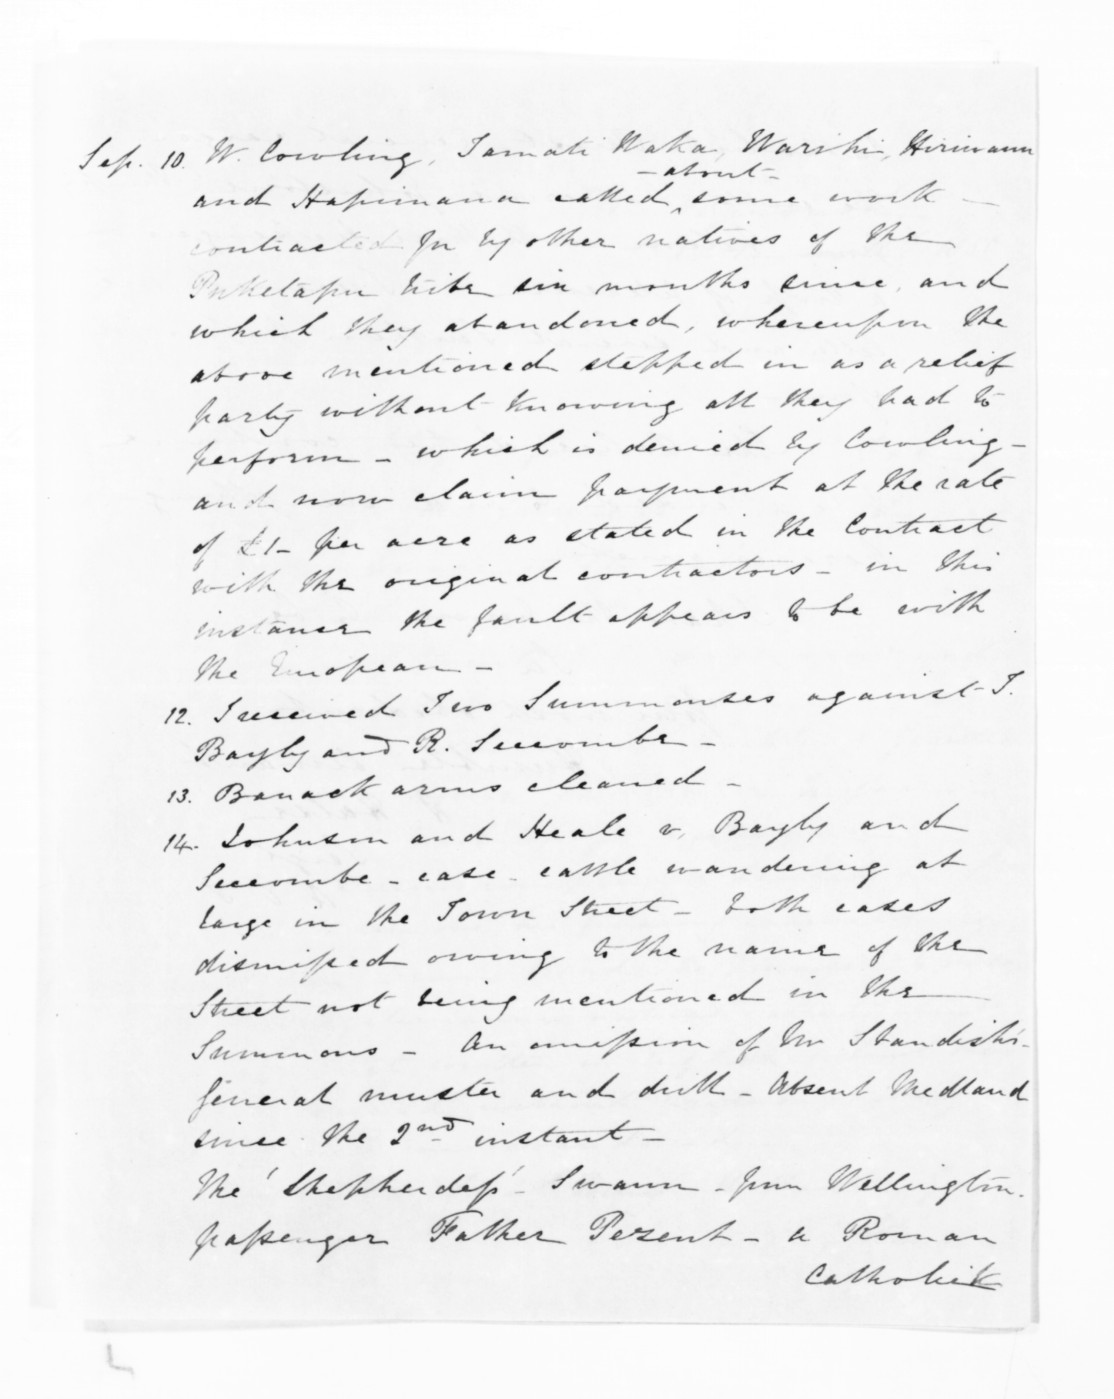 Sep. 10. W. Cowling, Tamati Waka, Warihi, Hiriwanu
- about -
and Hapimana called, some work -
contracted for by other natives of the
Puketapu tribe six months since, and
which they abandoned, whereupon the
above mentioned stepped in as a relief
party without knowing all they had to
perform - which is denied by Cowling -
and now claim payment at the rate
of £1 - per acre as stated in the Contract
with the original contractors - in this
instance the fault appears to be with
the European -
12. I received Two Summonses against T.
Bayly and R. Seccombe -
13. Barrack arms cleaned -
14. Johnson and Heale v. Bayly and
Seccombe - case - cattle wandering at
large in the Town Street - both cases
dismissed owing to the name of the
Street not being mentioned in the
Summons - An omission of Mr Standish's -
General muster and drill - Absent Medland
since the 2nd instant -
The 'Shepherdess' - Swann - from Wellington.
passenger Father Pezent - a Roman
Catholick